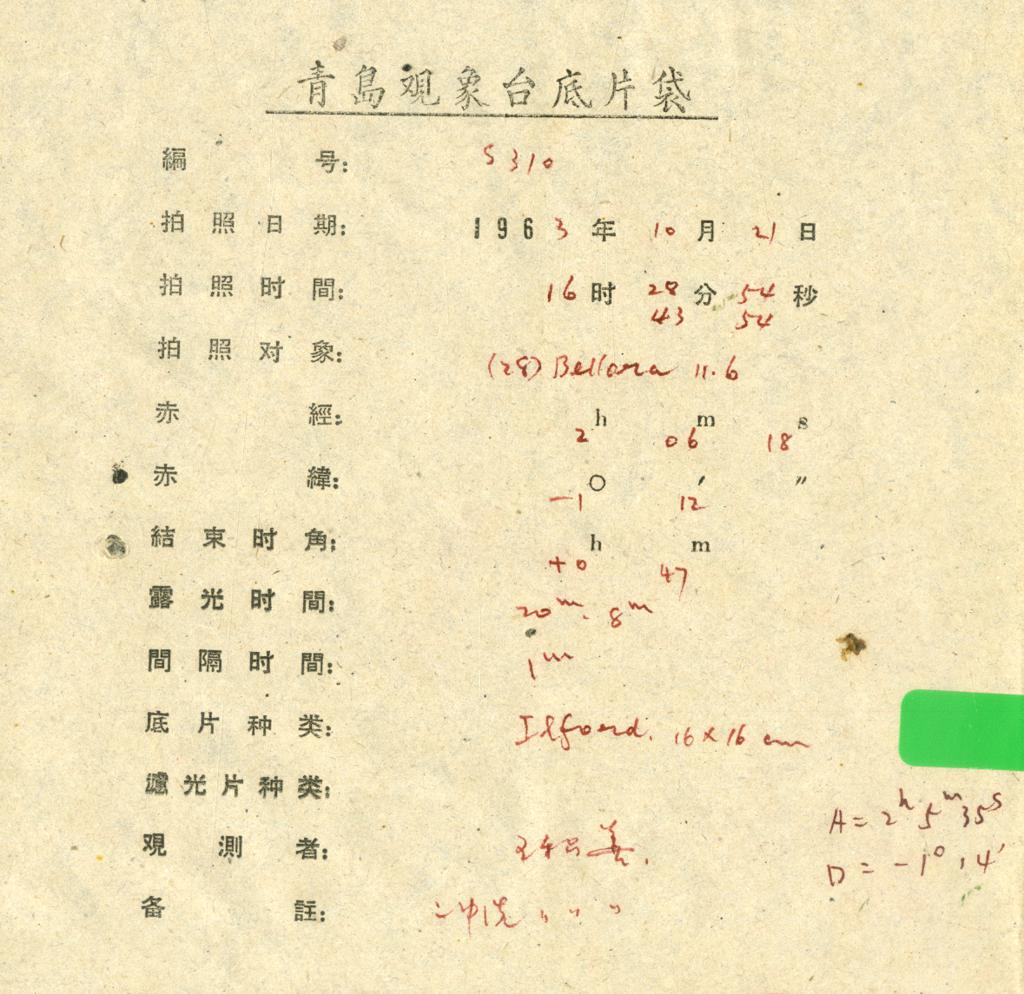 青島观象台底片袋
編号: S310
拍照日期: 1963年10月21日
拍照时間: 16时28分54秒
43 54
拍照对象: (28) Bellona 11.6
赤經: 2h 06m 18s
赤緯: -1° 12′ ″
結束时角: +0h 47m
露光时間: 20m. 8m
間隔时間: 1m
底片种类: Ilfoerd. 16×16 cm
濾光片种类:
A=2h5m35s
观測者:
D=-1°14′
备註: 冲洗 〃 〃 〃